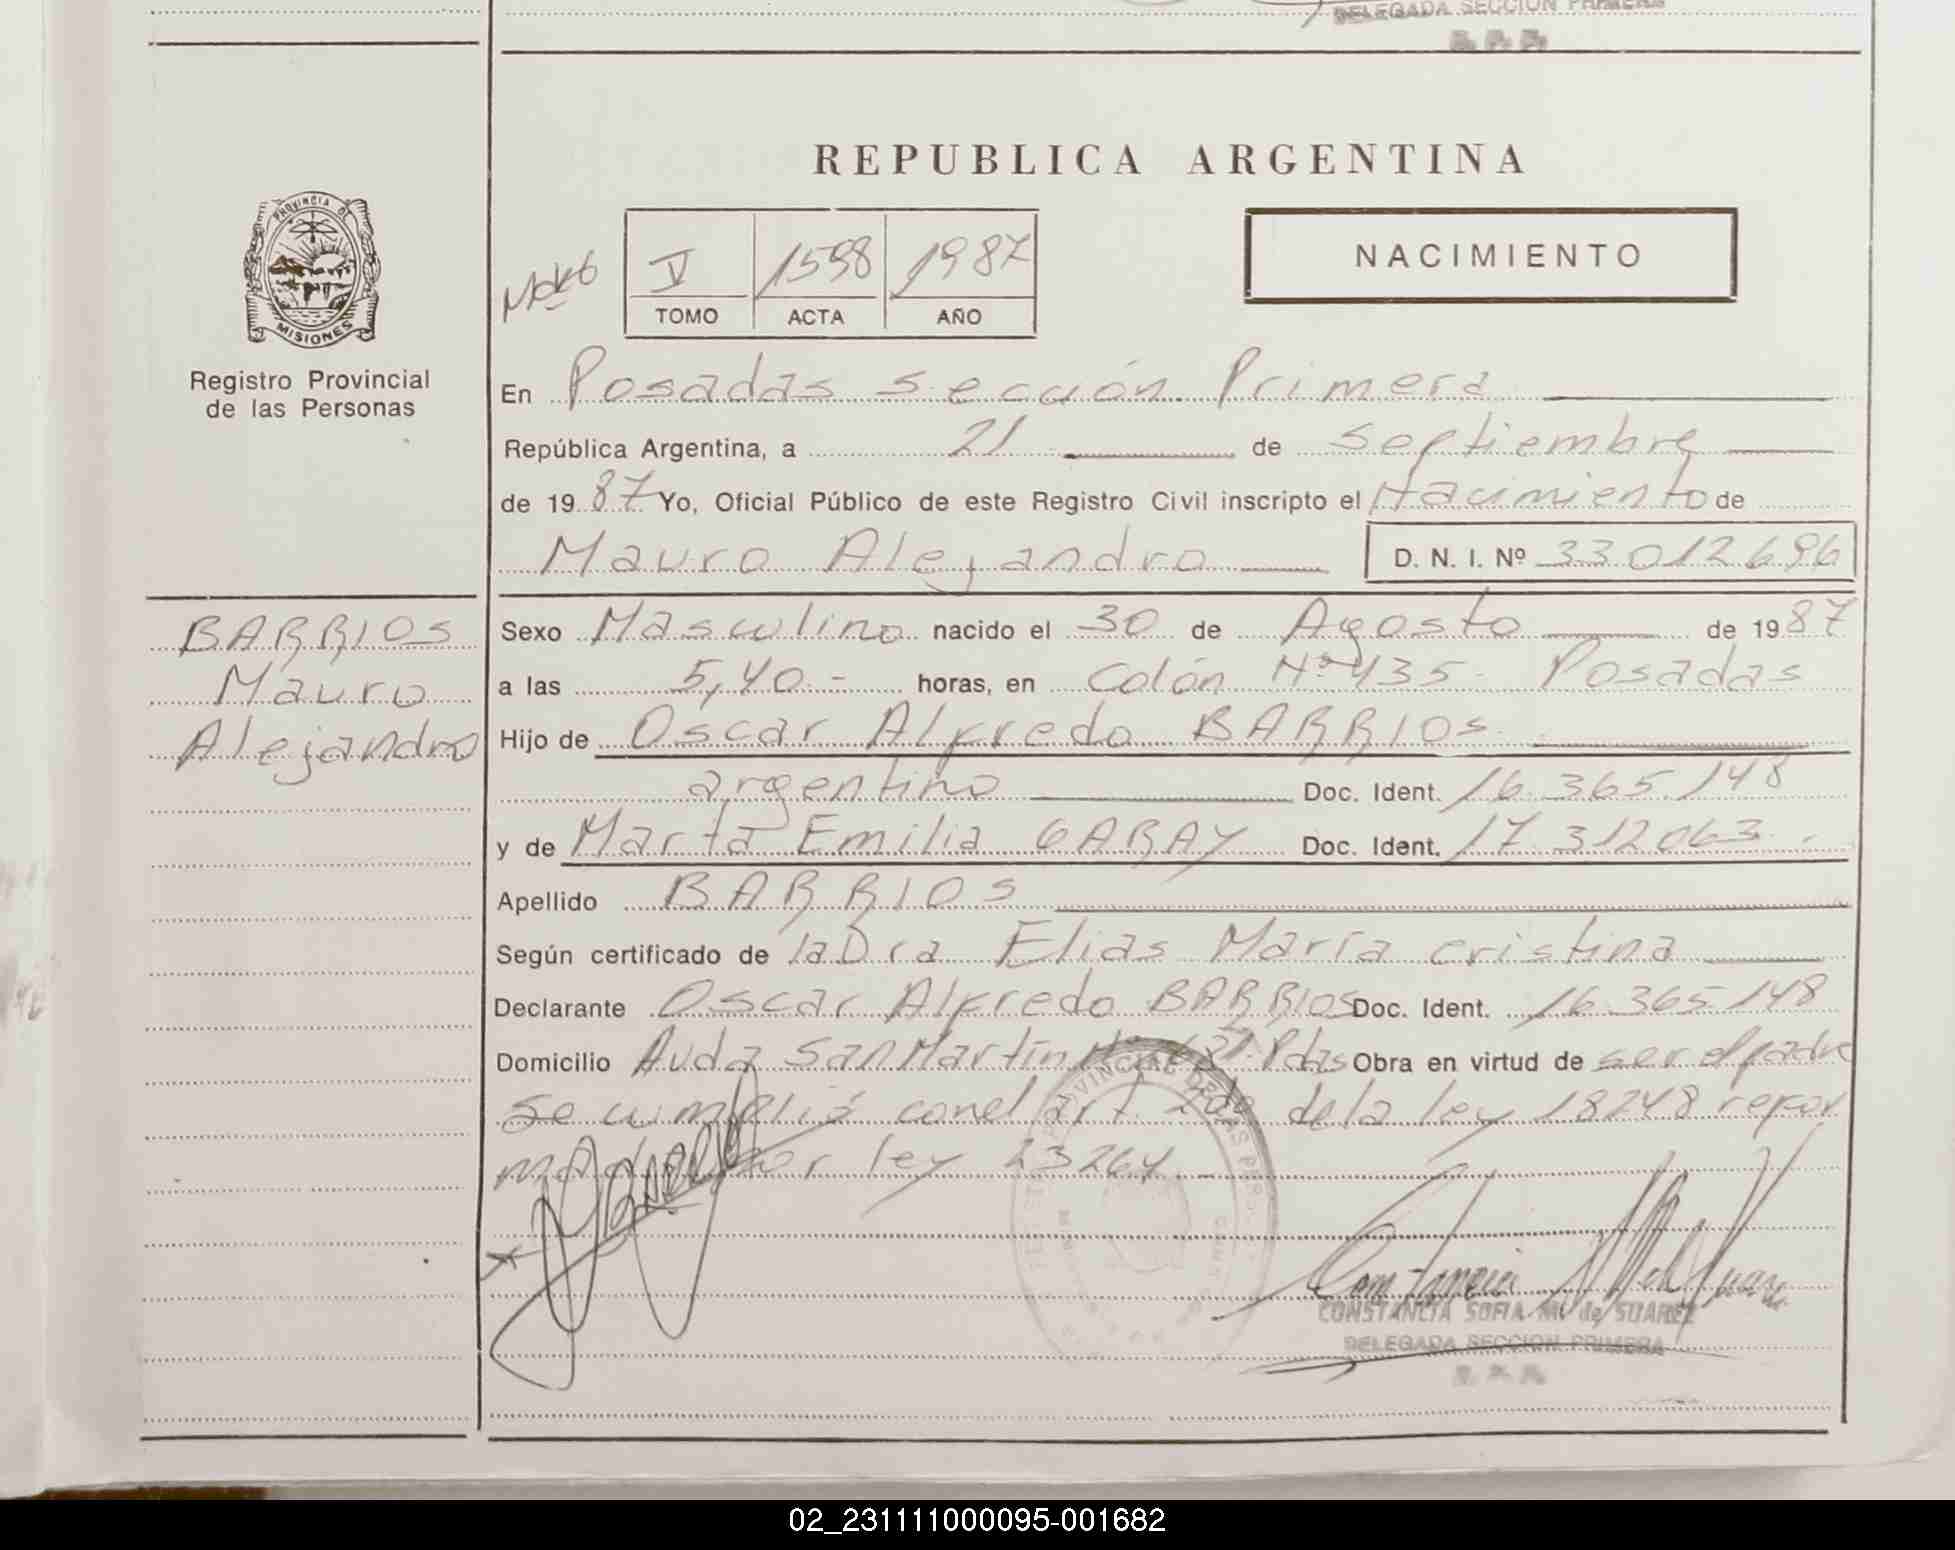 DELEGADA SECCION PRIMERA
PROVINCIA DE
MISIONES
Registro Provincial
de las Personas
REPUBLICA ARGENTINA
NACIMIENTO
V 1598 1987
TOMO ACTA AÑO
En Posadas sección Primera
República Argentina, a 21 de septiembre
de 1987 Yo, Oficial Público de este Registro Civil inscripto el Nacimiento de
Mauro Alejandro D. N. I. Nº 33012696
BARRIOS
Mauro
Alejandro
Sexo Masculino nacido el 30 de Agosto de 1987
a las 5,40.- horas, en Colón Nº 435- Posadas
Hijo de Oscar Alfredo BARRIOS
argentino Doc. Ident. 16.365.148
y de Marta Emilia GARAY Doc. Ident. 17.312.063.-
Apellido BARRIOS
Según certificado de la Dra Elias María cristina
Declarante Oscar Alfredo BARRIOS Doc. Ident. 16.365.148
Domicilio Avda San Martín Nº Pdas Obra en virtud de ser el padre
se cumplió con el art. 2do de la ley 18248 refor
por ley 23264.-
CONSTANCIA SOFIA M. de SUAREZ
DELEGADA SECCION PRIMERA
02_231111000095-001682